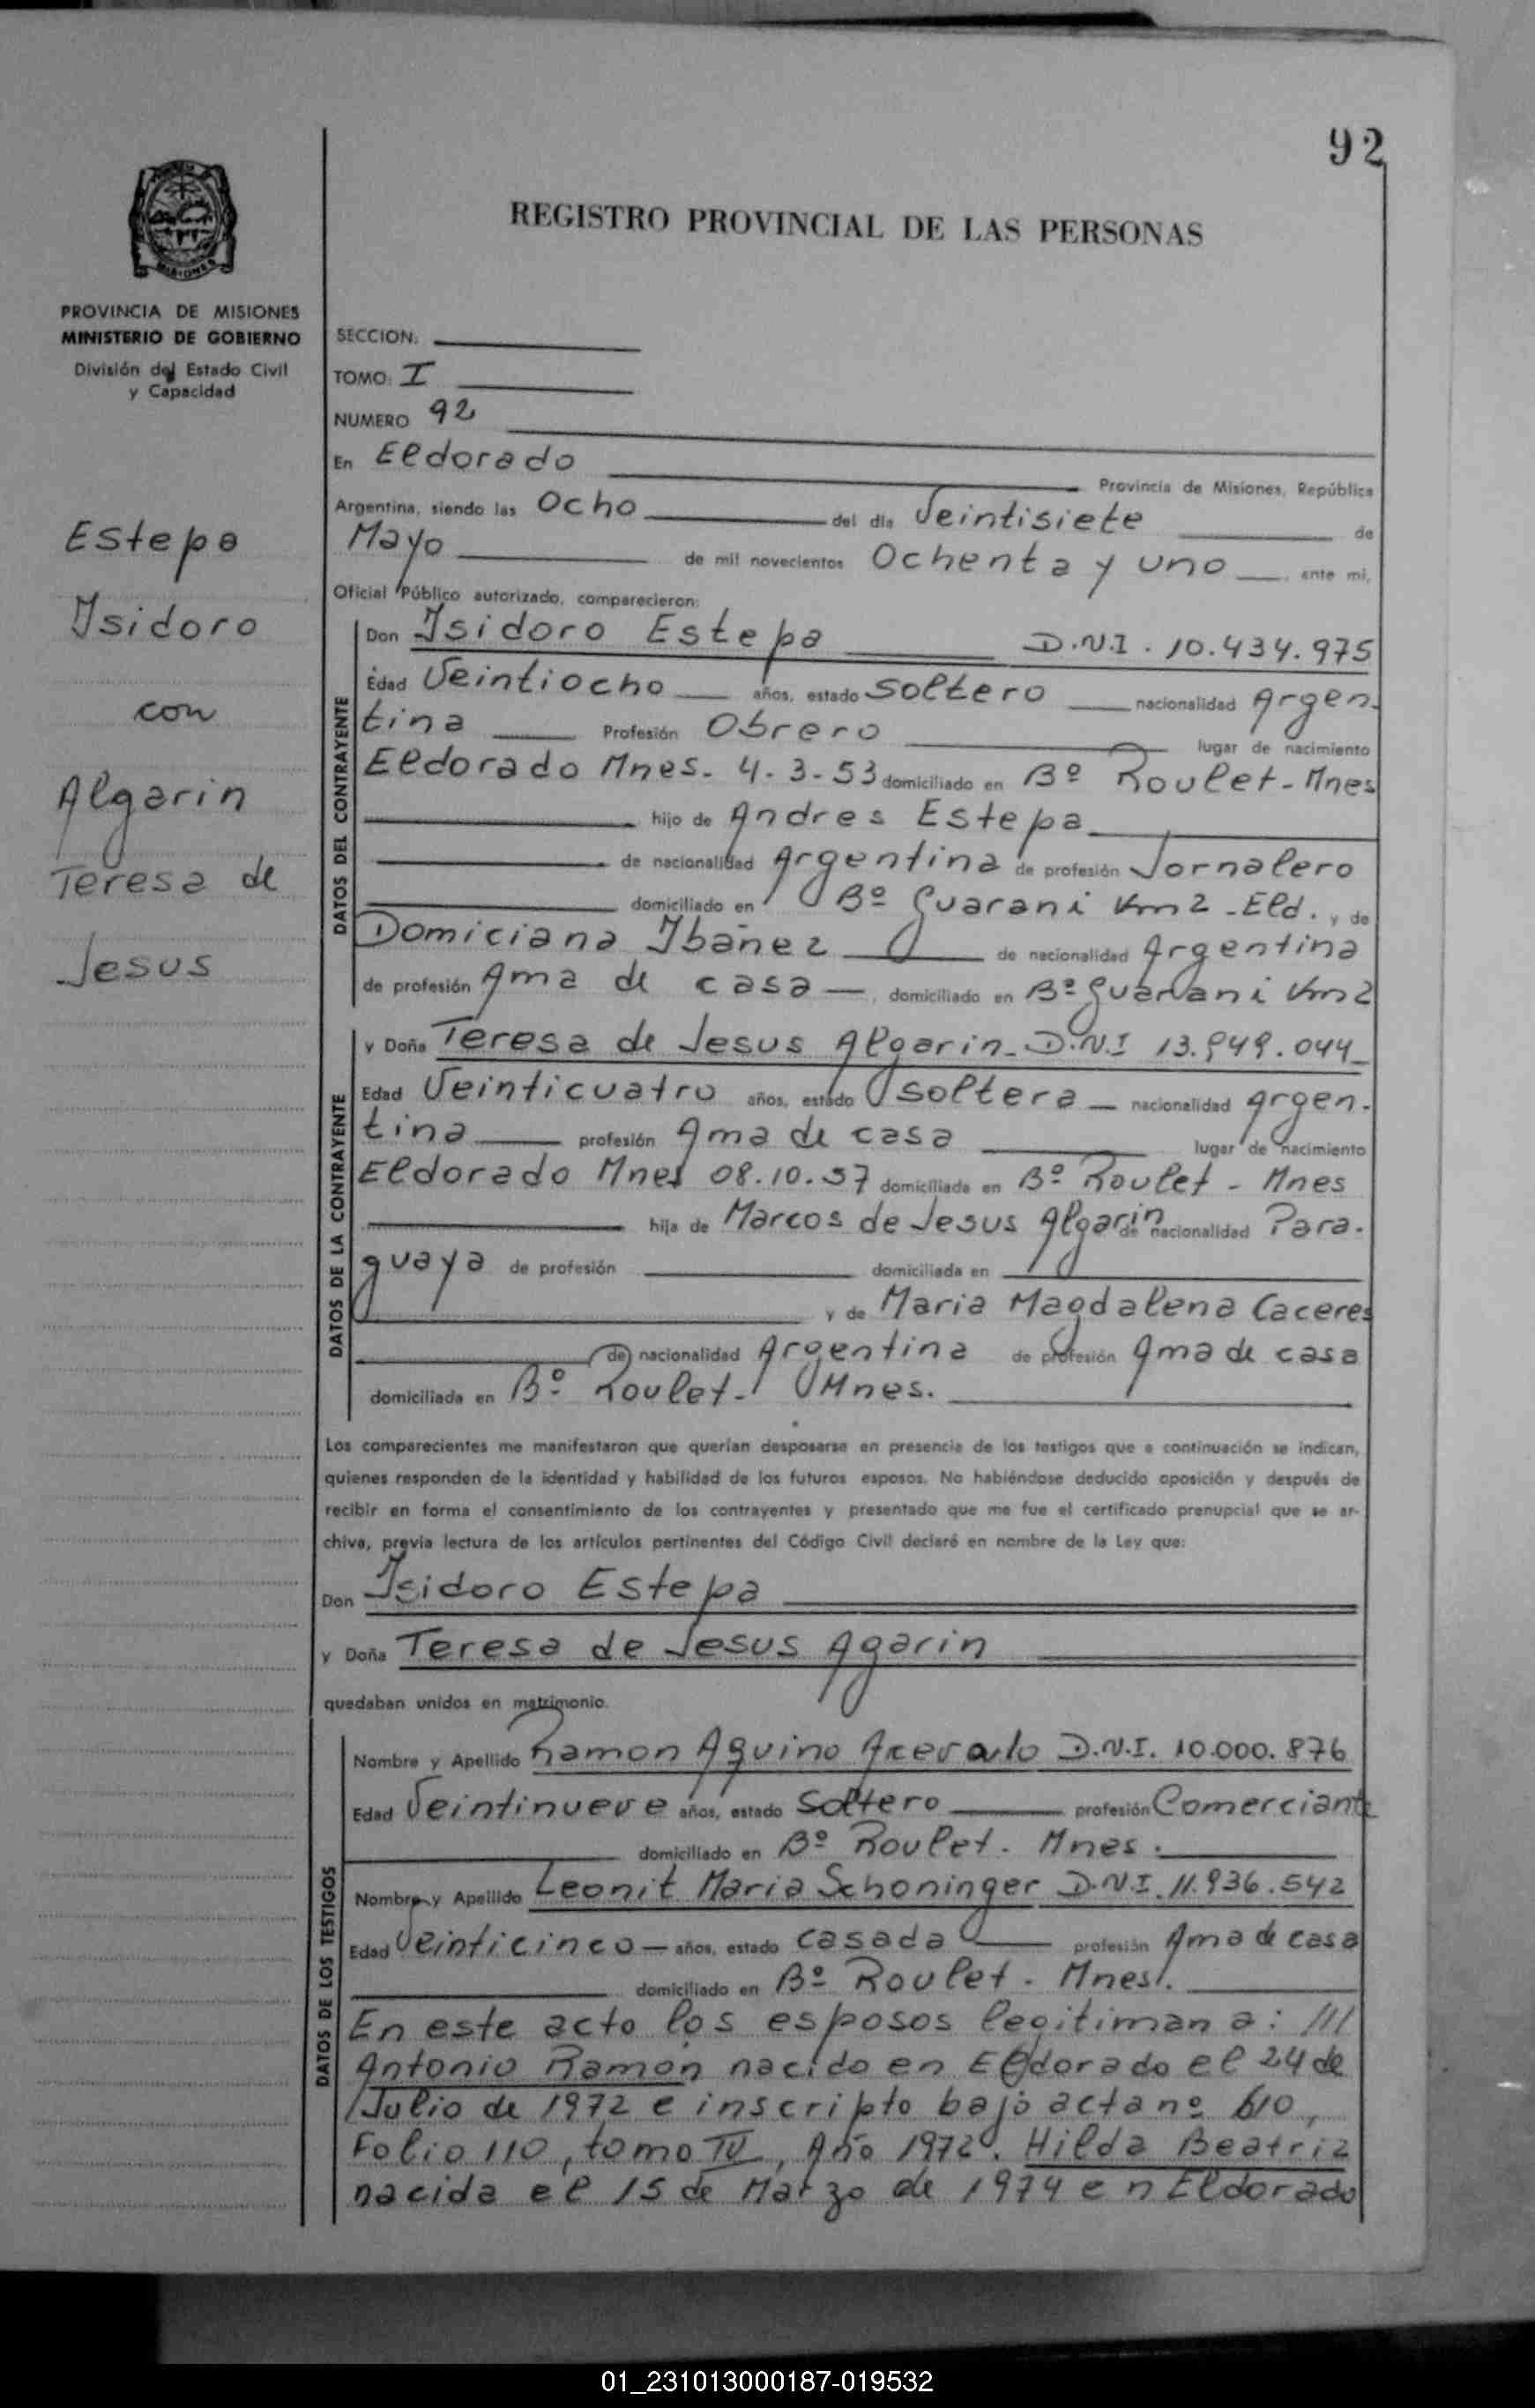 92
REGISTRO PROVINCIAL DE LAS PERSONAS
MISIONES
PROVINCIA DE MISIONES
MINISTERIO DE GOBIERNO
División del Estado Civil
y Capacidad
Estepa
Isidoro
con
Algarin
Teresa de
Jesus
SECCION:
TOMO: I
NUMERO 92
En Eldorado Provincia de Misiones, República
Argentina, siendo las Ocho del día Veintisiete de
Mayo de mil novecientos Ochenta y uno, ante mi,
Oficial Público autorizado, comparecieron:
DATOS DEL CONTRAYENTE
Don Isidoro Estepa D.N.I. 10.434.975
Edad Veintiocho años, estado Soltero nacionalidad Argen-
tina Profesión Obrero lugar de nacimiento
Eldorado Mnes. 4-3-53 domiciliado en Bº Roulet-Mnes
hijo de Andres Estepa
de nacionalidad Argentina de profesión Jornalero
domiciliado en Bº Guarani Km 2 -Eld., y de
Domiciana Ibañez de nacionalidad Argentina
de profesión Ama de casa, domiciliado en Bº Guarani Km 2
DATOS DE LA CONTRAYENTE
y Doña Teresa de Jesus Algarin-D.N.I 13.949.044-
Edad Veinticuatro años, estado Soltera nacionalidad Argen-
tina profesión Ama de casa lugar de nacimiento
Eldorado Mnes 08.10.57 domiciliada en Bº Roulet - Mnes
hija de Marcos de Jesus Algarin de nacionalidad Para-
guaya de profesión domiciliada en
y de Maria Magdalena Caceres
de nacionalidad Argentina de profesión Ama de casa
domiciliada en Bº Roulet- Mnes.
Los comparecientes me manifestaron que querían desposarse en presencia de los testigos que a continuación se indican,
quienes responden de la identidad y habilidad de los futuros esposos. No habiéndose deducido oposición y después de
recibir en forma el consentimiento de los contrayentes y presentado que me fue el certificado prenupcial que se ar-
chiva, previa lectura de los artículos pertinentes del Código Civil declaré en nombre de la Ley que:
Don Isidoro Estepa
y Doña Teresa de Jesus Agarin
quedaban unidos en matrimonio.
DATOS DE LOS TESTIGOS
Nombre y Apellido Ramon Aquino Acevedo D.N.I. 10.000.876
Edad Veintinueve años, estado Soltero profesión Comerciante
domiciliado en Bº Roulet. Mnes.
Nombre y Apellido Leonit Maria Schoninger D.N.I. 11.936.542
Edad Veinticinco años, estado casada profesión Ama de casa
domiciliado en Bº Roulet. Mnes.
En este acto los esposos legitiman a: ///
Antonio Ramon nacido en Eldorado el 24 de
Julio de 1972 e inscripto bajo acta nº 610,
Folio 110, tomo IV, Año 1972. Hilda Beatriz
nacida el 15 de Marzo de 1974 en Eldorado
01_231013000187-019532